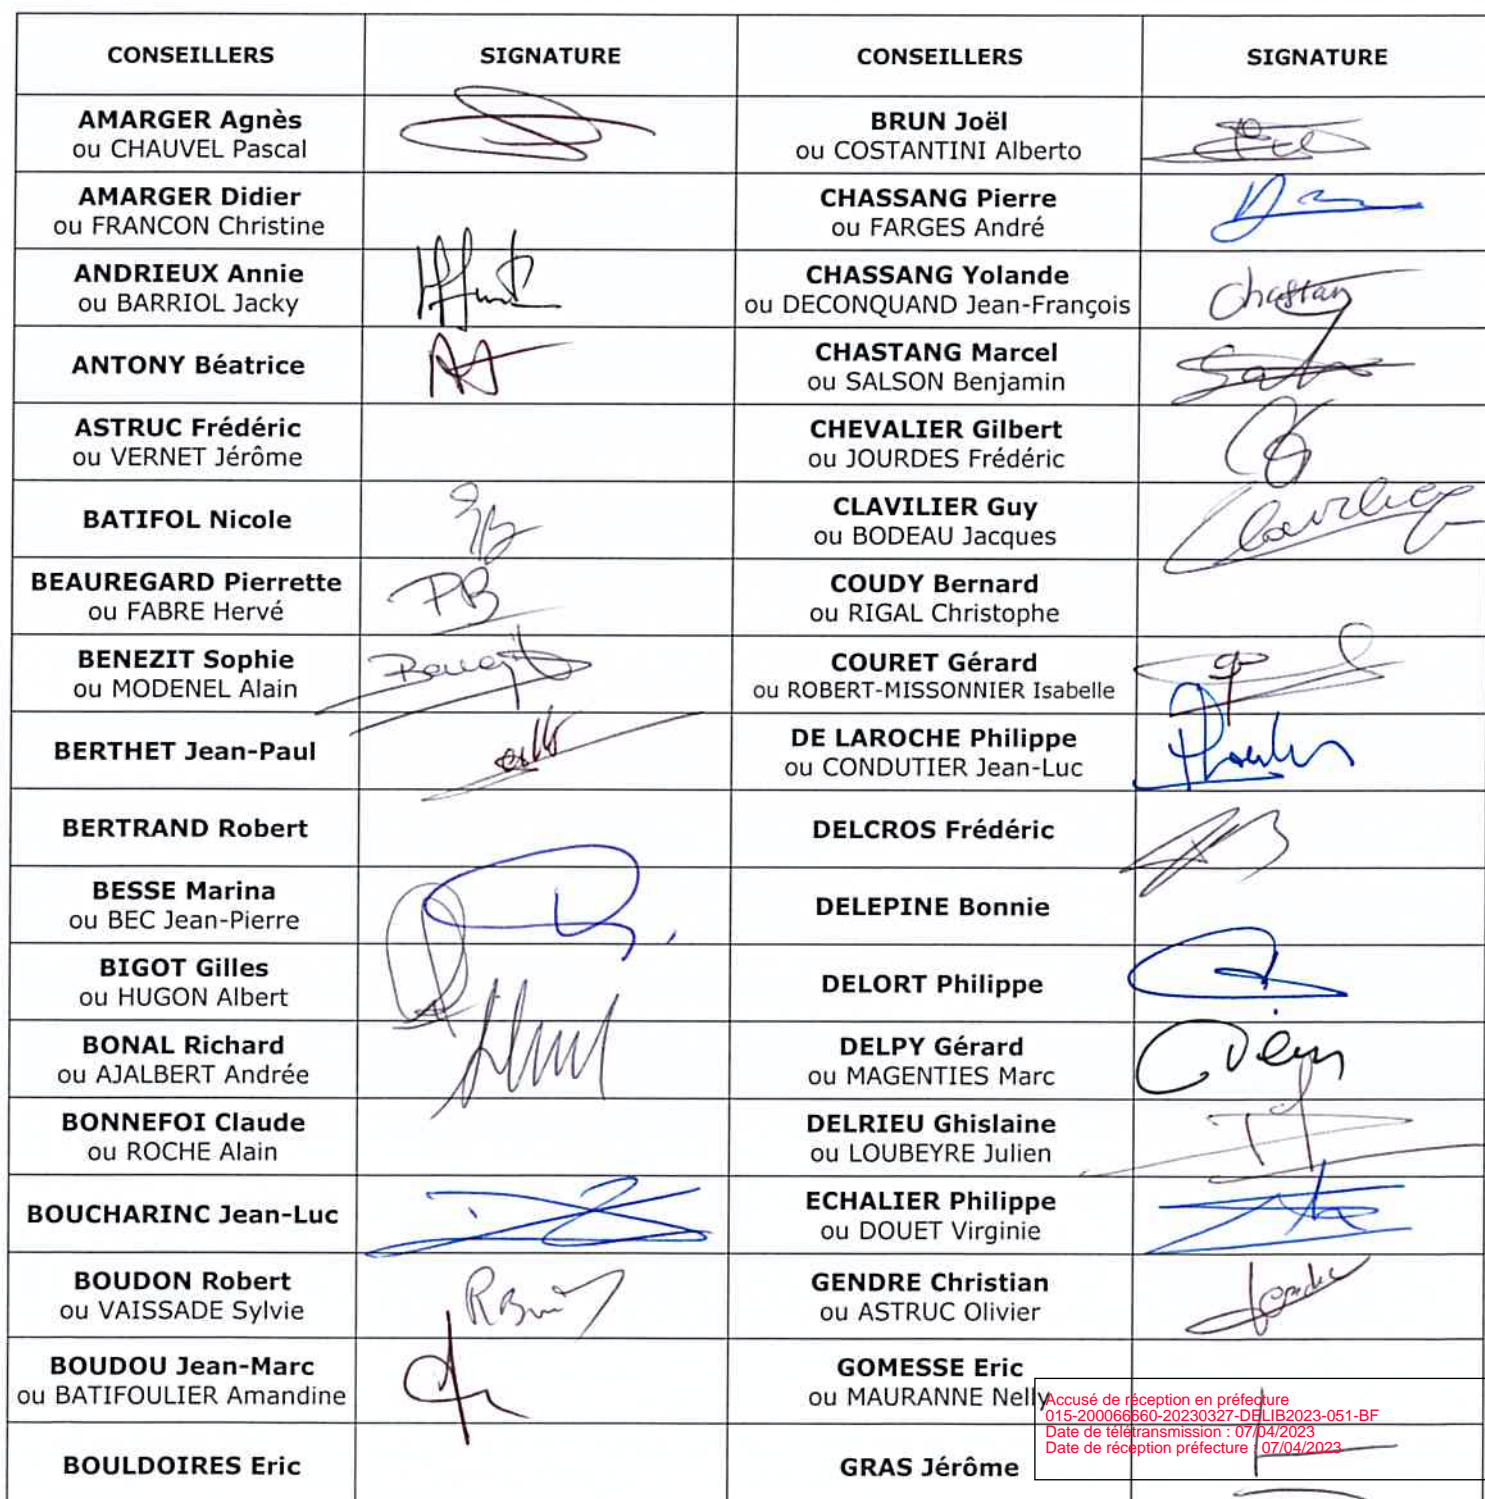 CONSEILLERS SIGNATURE CONSEILLERS SIGNATURE
AMARGER Agnès
ou CHAUVEL Pascal
BRUN Joël
ou COSTANTINI Alberto
AMARGER Didier
ou FRANCON Christine
CHASSANG Pierre
ou FARGES André
ANDRIEUX Annie
ou BARRIOL Jacky
CHASSANG Yolande
ou DECONQUAND Jean-François
Chassang
ANTONY Béatrice
CHASTANG Marcel
ou SALSON Benjamin
ASTRUC Frédéric
ou VERNET Jérôme
CHEVALIER Gilbert
ou JOURDES Frédéric
BATIFOL Nicole
CLAVILIER Guy
ou BODEAU Jacques
Clavilier
BEAUREGARD Pierrette
ou FABRE Hervé
PB
COUDY Bernard
ou RIGAL Christophe
BENEZIT Sophie
ou MODENEL Alain
Benezit
COURET Gérard
ou ROBERT-MISSONNIER Isabelle
BERTHET Jean-Paul
DE LAROCHE Philippe
ou CONDUTIER Jean-Luc
BERTRAND Robert
DELCROS Frédéric
BESSE Marina
ou BEC Jean-Pierre
DELEPINE Bonnie
BIGOT Gilles
ou HUGON Albert
DELORT Philippe
BONAL Richard
ou AJALBERT Andrée
DELPY Gérard
ou MAGENTIES Marc
BONNEFOI Claude
ou ROCHE Alain
DELRIEU Ghislaine
ou LOUBEYRE Julien
BOUCHARINC Jean-Luc
ECHALIER Philippe
ou DOUET Virginie
BOUDON Robert
ou VAISSADE Sylvie
GENDRE Christian
ou ASTRUC Olivier
BOUDOU Jean-Marc
ou BATIFOULIER Amandine
GOMESSE Eric
ou MAURANNE Nelly
BOULDOIRES Eric
GRAS Jérôme
Accusé de réception en préfecture
015-200066660-20230327-DELIB2023-051-BF
Date de télétransmission : 07/04/2023
Date de réception préfecture : 07/04/2023